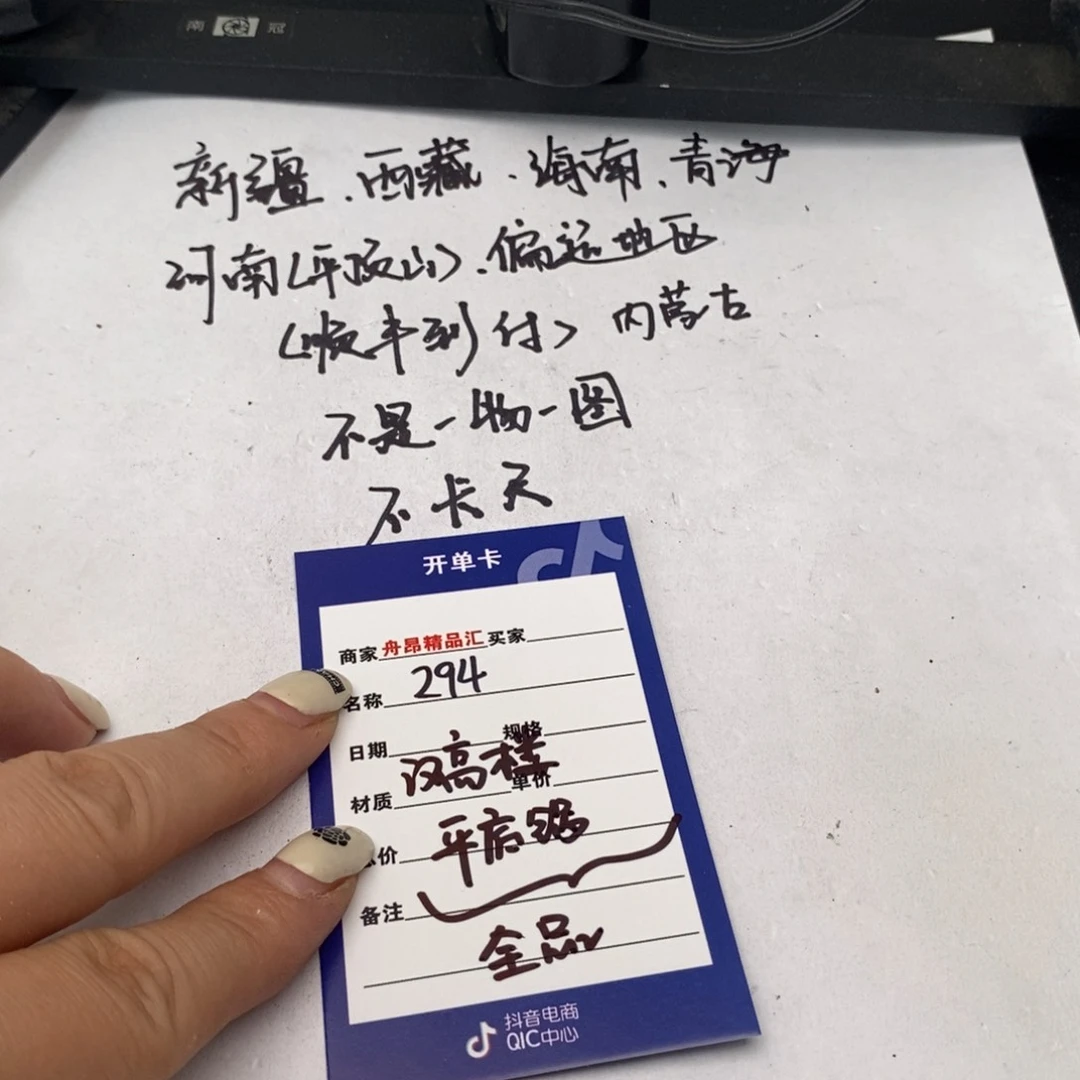 南 hp 冠
新疆、西藏、海南、青海
河南(平顶山)、偏远地区
(顺丰到付) 内蒙古
不是一物一图
不卡天
开单卡
商家 舟昂精品汇 买家
名称 294
日期 规格
汉高楼
材质 单价
平底锅
价
备注
全品
抖音电商
QIC中心